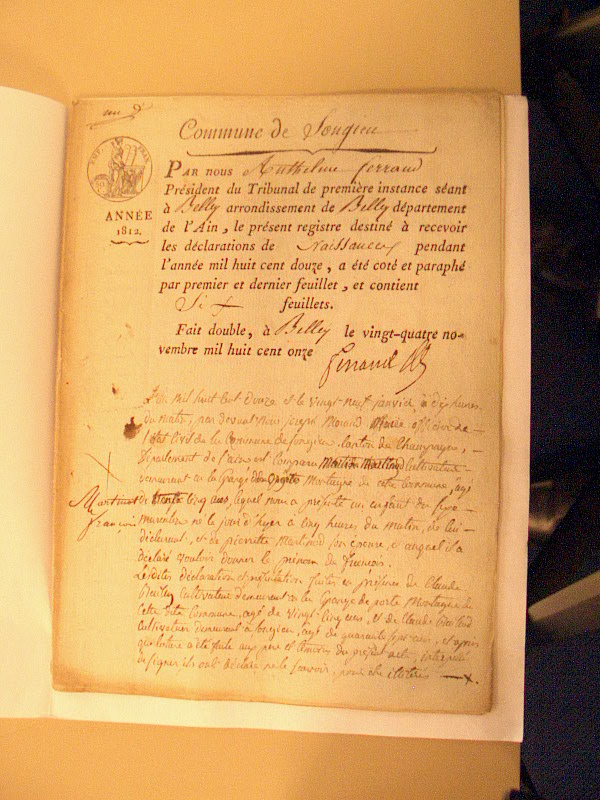 an 9e
Commune de Songieu
PAR NOUS Anthelme ferrand
Président du Tribunal de première instance séant
à Belley arrondissement de Belley département
de l'Ain, le présent registre destiné à recevoir
les déclarations de Naissances pendant
l'année mil huit cent douze, a été coté et paraphé
par premier et dernier feuillet, et contient
Six feuillets.
Fait double, à Belley le vingt-quatre no-
vembre mil huit cent onze
ferrand
ANNÉE
1812.
L'an mil huit cent douze et le vingt neuf janvier, à dix heures
du matin, par devant Nous joseph Maire officier de
l'état civil de la Commune de songieu, canton de Champagne,
Département de l'ain est comparu Martinod Cultivateur
demeurant en la Grange Montagne de cette Commune, agé
de trente cinq ans, lequel nous a présenté un enfant du sexe
masculin né le jour d'hyer a cinq heures du matin, de lui
déclarant, et de pierrette Martinod son épouse, et auquel il a
déclaré vouloir donner le prénom de françois.
Lesdites déclaration et présentation faites en présence de Claude
Cultivateur demeurant en la Grange de porte Montagne de
Cette dite Commune, agé de vingt cinq ans, et de Claude
Cultivateur demeurant à songieu, agé de quarante ans, et après
que lecture a été faite aux père et témoins du présent acte, interpellés
de signer ils ont déclaré ne le savoir,
Martinod
françois